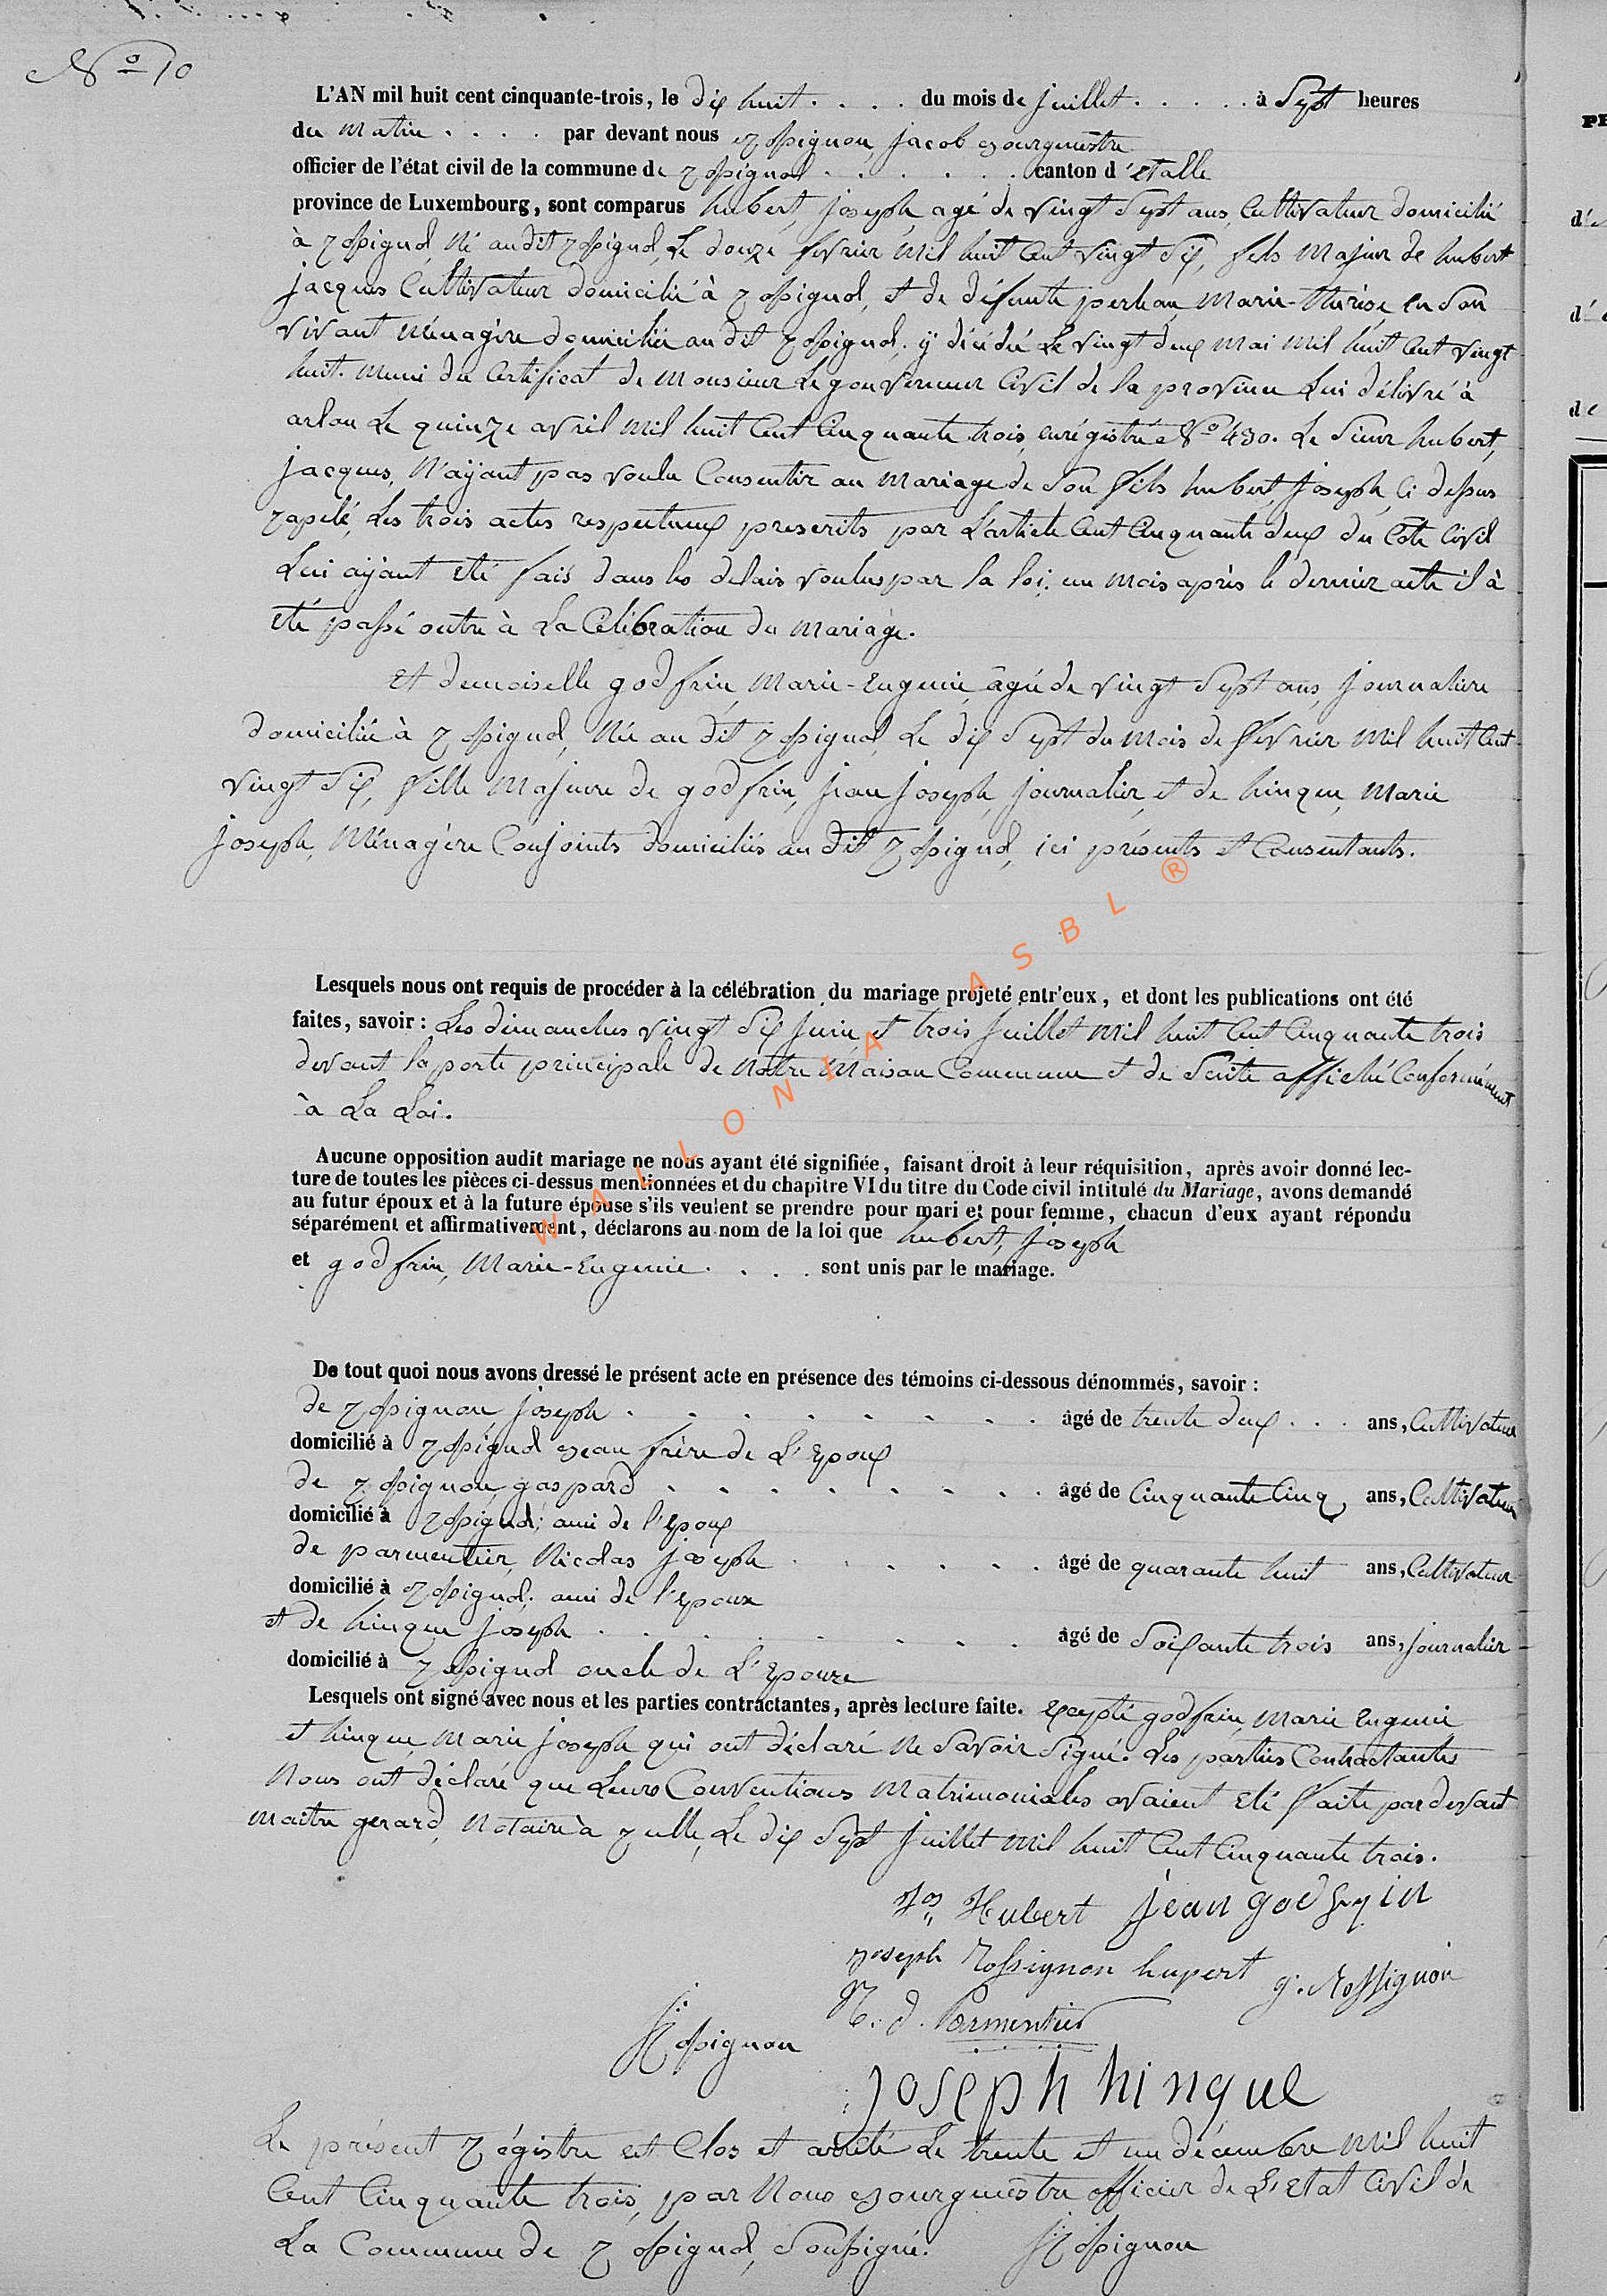 No 10
L'AN mil huit cent cinquante-trois, le dix huit . . . . du mois de juillet . . . . . à Sept heures
du matin . . . . par devant nous rossignon, jacob Bourguestre
officier de l'état civil de la commune de rossignol . . . . . . canton d'Etalle
province de Luxembourg, sont comparus hubert, joseph, agé de vingt Sept ans, Cultivateur domicilié
à rossignol, Né audit rossignol, Le douze fevrier mil huit Cent vingt Six, fils Majeur de hubert
jacques Cultivateur domicilié à rossignol, et de défunte perleau, Marie-thérèse, en Son
vivant ménagère domiciliée au dit rossignol, ÿ décédée Le vingt deux mai mil huit Cent vingt
huit. muni du Certificat de monsieur Le gouverneur Civil de la province Lui délivré à
arlon Le quinze avril mil huit Cent Cinquante trois, enrégistré No 430. Le Sieur hubert,
jacques, N'aÿant pas voulu Consentir au Mariage de Son fils hubert, joseph, Ci dessus
rapelé, Les trois actes respectueux prescrits par L'article Cent Cinquante deux du Côte Civil
Lui aÿant eté fais dans les delais voulus par la loi; un mois après le dernier acte il à
eté passé outre à La Celébration du mariage.
Et demoiselle godfrin, Marie-Eugenie, âgée de vingt Sept ans, journalière
domiciliée à rossignol, Née au dit rossignol, Le dix Sept du mois de fevrier mil huit Cent
vingt Six, fille Majeure de godfrin, jean joseph, journalier, et de hinque, Marie
joseph, Ménagère Conjoints domiciliés au dit rossignol, ici présents et Consentants.
Lesquels nous ont requis de procéder à la célébration du mariage projeté entr'eux, et dont les publications ont été
faites, savoir : Les dimanches vingt Six juin et trois juillet mil huit Cent Cinquante trois
devant la porte principale de Nôtre Maison Commune et de Suite affiché Conformément
à La Loi.
Aucune opposition audit mariage ne nous ayant été signifiée, faisant droit à leur réquisition, après avoir donné lec-
ture de toutes les pièces ci-dessus mentionnées et du chapitre VI du titre du Code civil intitulé du Mariage, avons demandé
au futur époux et à la future épouse s'ils veulent se prendre pour mari et pour femme, chacun d'eux ayant répondu
séparément et affirmativement, déclarons au nom de la loi que hubert, joseph
et godfrin, Marie-Eugenie . . . . sont unis par le mariage.
De tout quoi nous avons dressé le présent acte en présence des témoins ci-dessous dénommés, savoir :
de rossignon, joseph . . . . . . . . âgé de trente deux . . . ans, Cultivateur
domicilié à rossignol Beau frère de L'Epoux
de rossignon, gaspard . . . . . . . âgé de Cinquante Cinq, ans, Cultivateur
domicilié à rossignol; ami de l'epoux
de parmentier, Nicolas joseph . . . . . âgé de quarante huit ans, Cultivateur
domicilié à rossignol; ami de l'epoux
et de hinque joseph . . . . . . . . âgé de Soixante trois ans, journalier
domicilié à rossignol oncle de L'Epouze
Lesquels ont signé avec nous et les parties contractantes, après lecture faite. Excepté godfrin, Marie Eugenie
et hinque, marie joseph qui ont déclaré Ne Savoir Signé. Les parties Contractantes
Nous ont déclaré que Leurs Conventions Matrimoniales avaient Eté faite pardevant
maitre gerard, Notaire à rulle, Le dix Sept juillet mil huit Cent Cinquante trois.
Jos Hubert jean godfrin
Joseph Rossignon hupert g. Rossignon
N. J. Parmentier
J. Rossignon
joseph hinque
Le présent régistre est Clos et arrêté Le trente et un décembre mil huit
Cent Cinquante trois, par Nous Bourguestre officier de L'Etat Civil de
La Commune de rossignol, Soussigné. J. Rossignon
WALLONIA ASBL ®